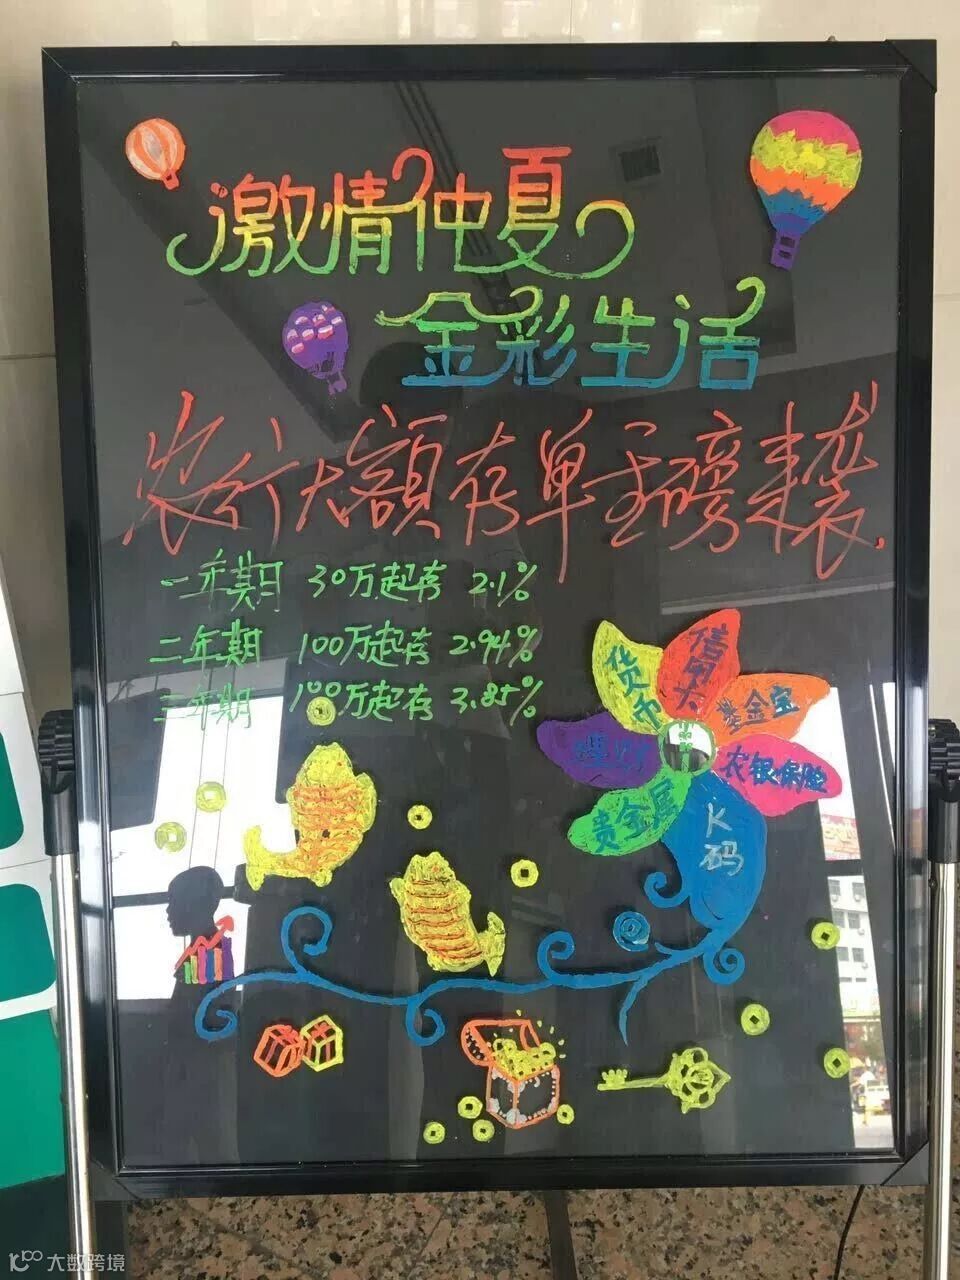 激情仲夏
金彩生活
农行大额存单重磅来袭
一年期 30万起存 2.1%
二年期 100万起存 2.94%
三年期 100万起存 3.85%
货币
信用卡
基金宝
理财
农银保险
贵金属
K码
大数跨境